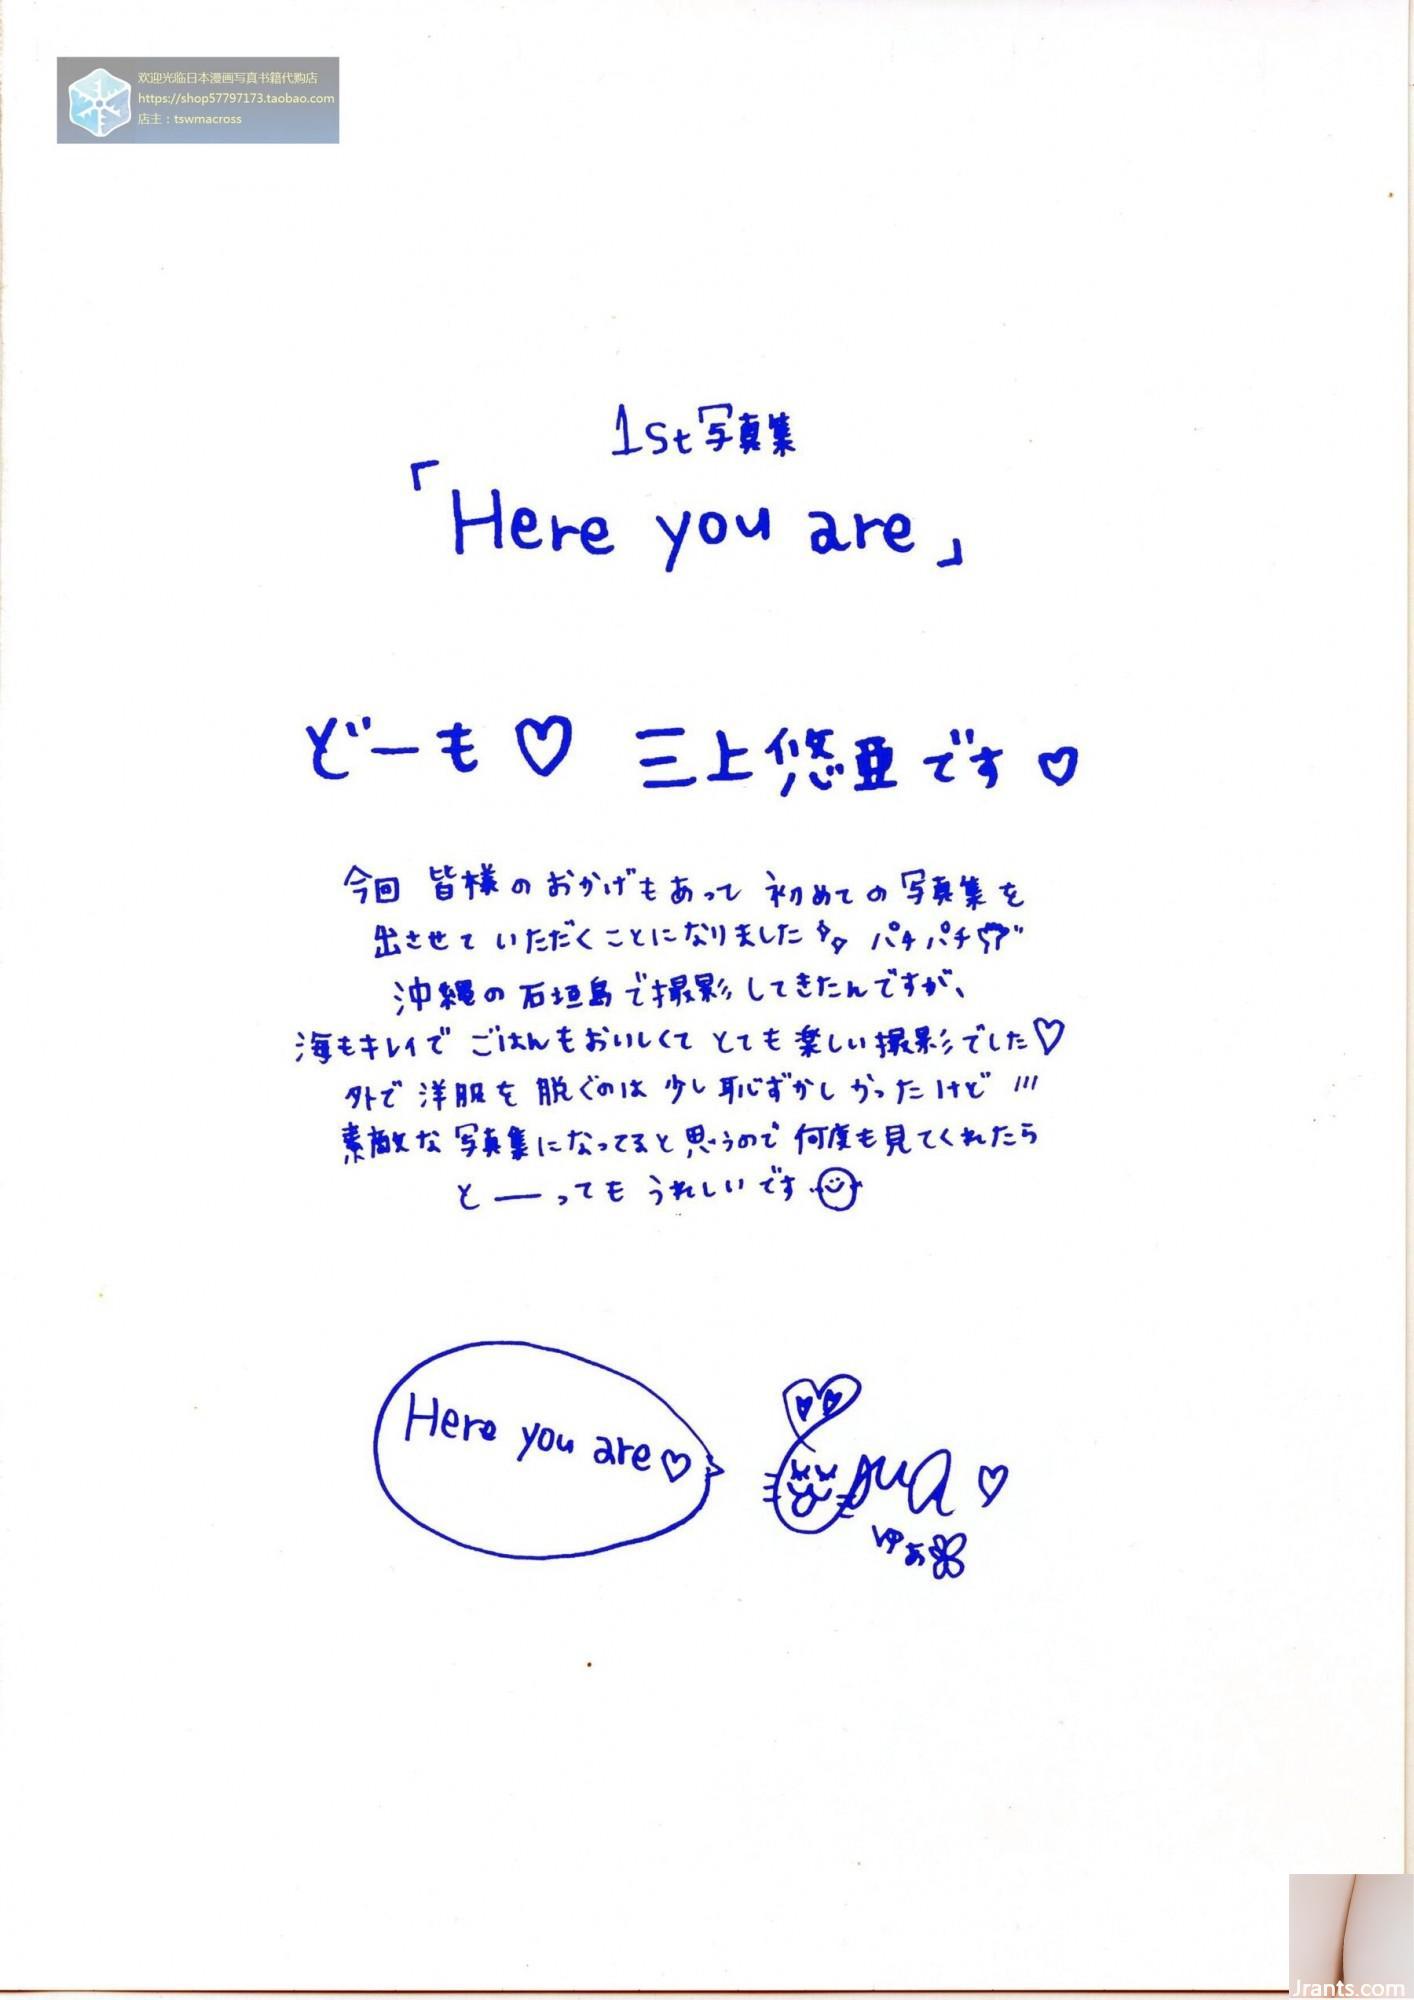 欢迎光临日本漫画写真书籍代购店
https://shop57797173.taobao.com
店主：tswmacross
1st写真集
「Here you are」
どーも♡ 三上悠亜です♡
今回 皆様のおかげもあって 初めての写真集を
出させて いただくことになりました パチパチ
沖縄の石垣島で撮影してきたんですが、
海もキレイで ごはんもおいしくて とても楽しい撮影でした♡
外で洋服を脱ぐのは少し恥ずかしかったけど!!!
素敵な写真集になってると思うので何度も見てくれたら
とーってもうれしいです
Here you are♡
yua♡
ゆあ
Jrants.com